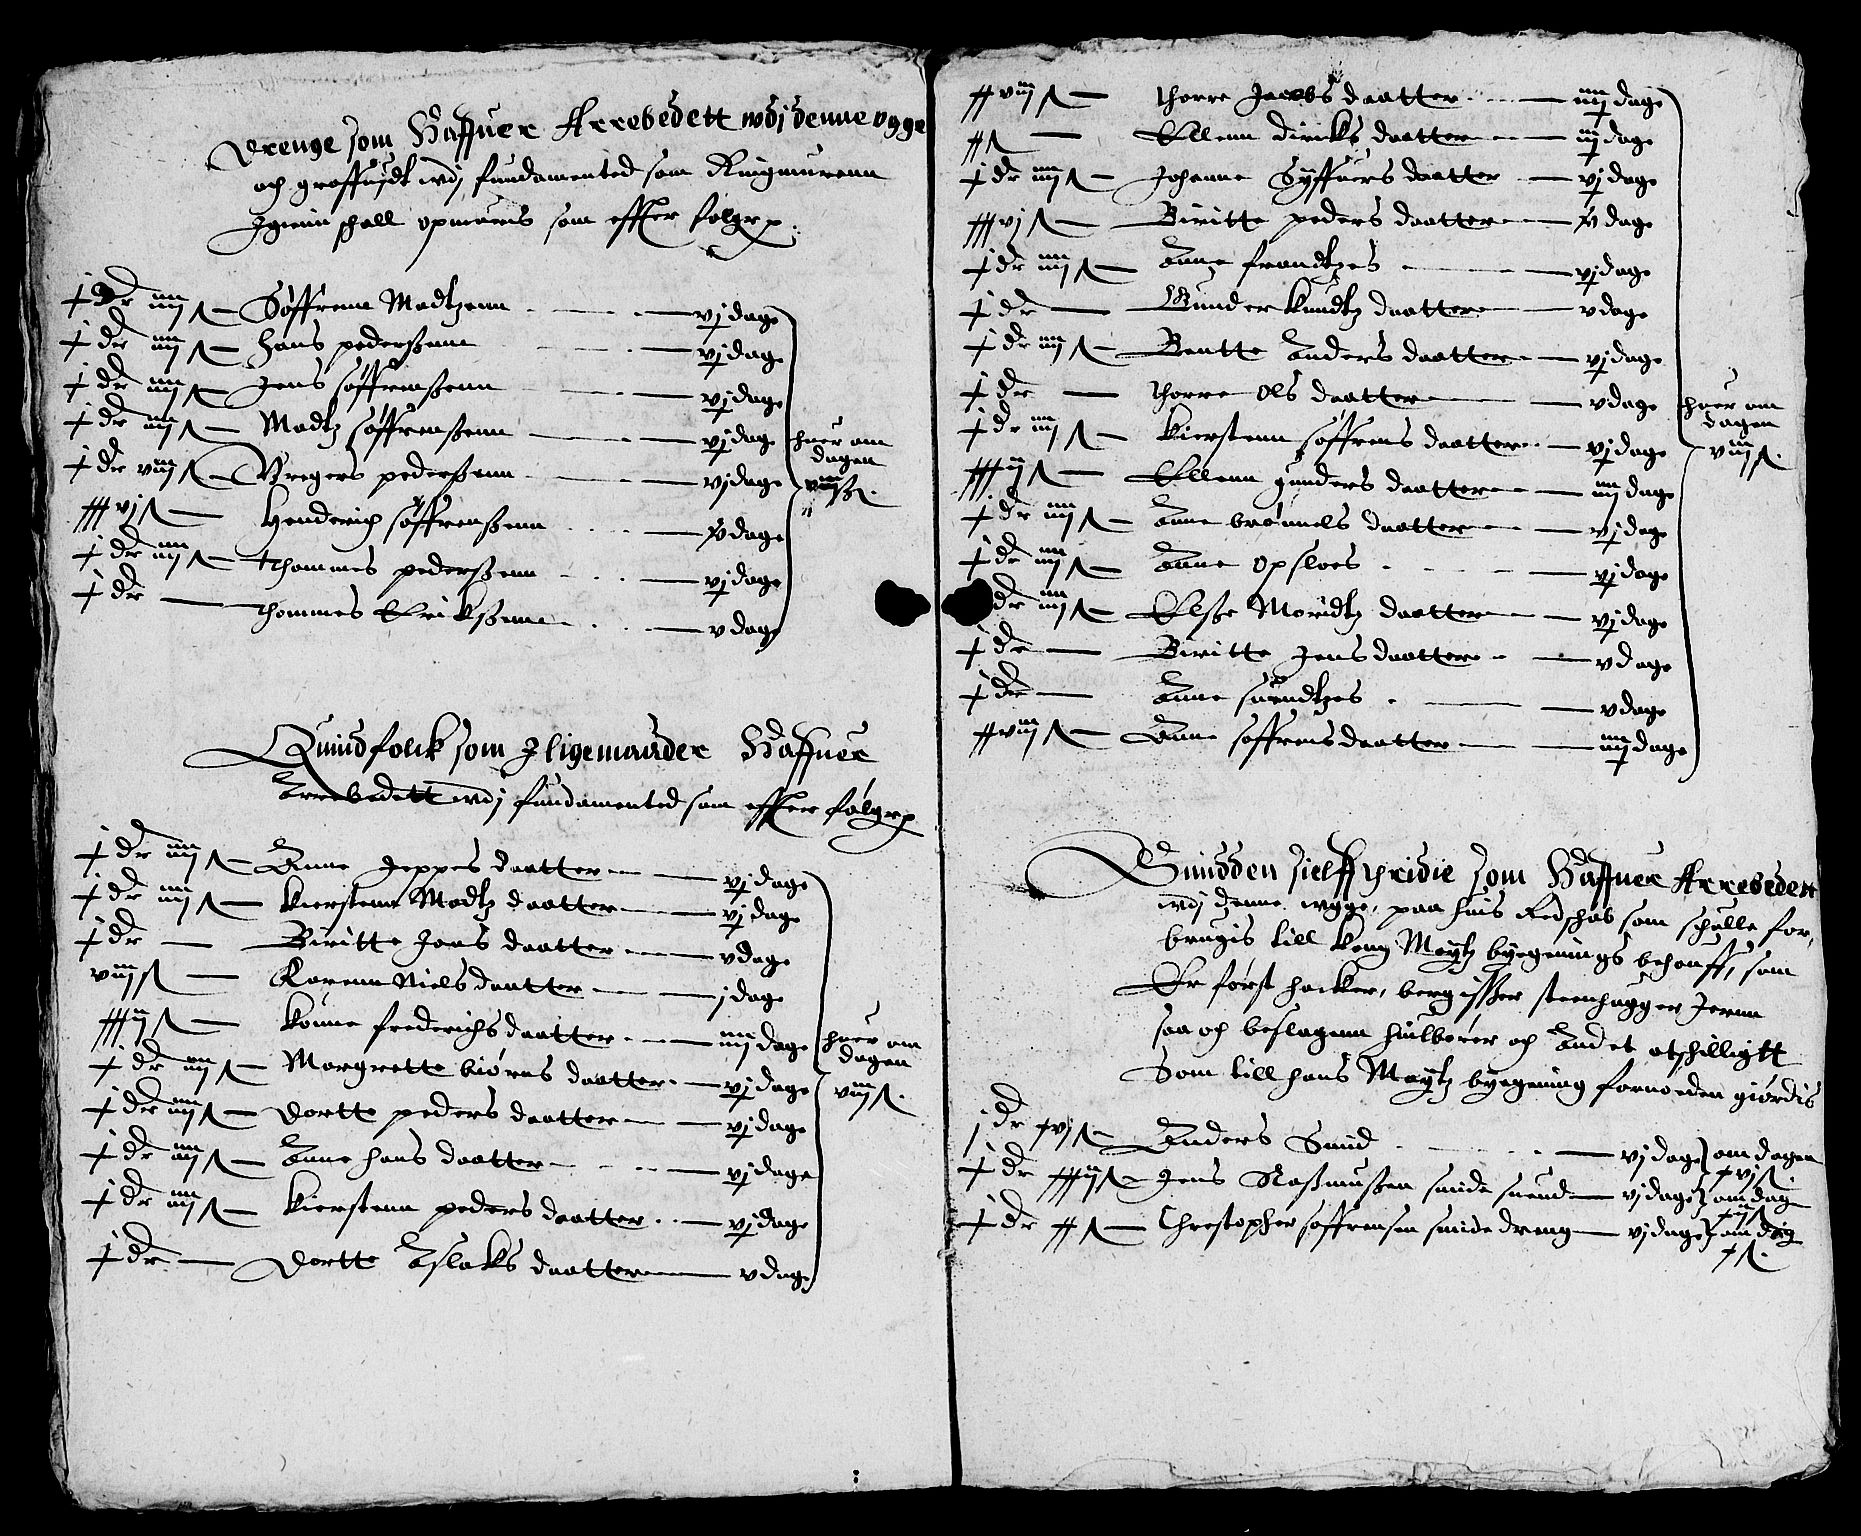 Drenge som Haffuer Arrebedett wdj denne vgge
och groffuidt wdj fundamented som Ringmurenn
Igienn schall opmuris som effter følger
j dr iiij s Søffrenn Madtzenn vj dage
j dr iiij s Hans pederßenn vj dage
j dr iiij s Jens søffrenßenn vj dage
j dr iiij s Madtz søffrenßenn vj dage
huer om
dagen
viij s.
j dr viij s Gregers pederßenn vj dage
vj s Henderich søffrenßenn v dage
j dr iiij s thommes pederßenn vj dage
j dr thommes Erikßenn v dage
Quindfolck som I ligemaader Haffuer
Arrebedett wdj fundamented som effter følger
j dr iiij s Anne Jeppes daatter vj dage
j dr iiij s Kierstenn Madtz daatter vj dage
j dr Biritte Jens daatter v dage
viij s Karenn Niels daatter j dage
ij s Konne frederichs daatter iiij dage
huer om
dagen
viij s.
j dr iiij s Margrette biørns daatter vj dage
j dr iiij s dortte peders daatter vj dage
j dr iiij s Anne hans daatter vj dage
j dr iiij s Kierstenn peders daatter vj dage
j dr dortte Aslaks daatter v dage
viij s thorre Jacobs daatter iiij dage
s Ellenn diriks daatter iij dage
j dr iiij s Johanne Syffuers daatter vj dage
vj s Biritte peders daatter v dage
j dr iiij s Anne frandtzes vj dage
j dr Gunder Knudtz daatter v dage
j dr iiij s Bentte Anders daatter vj dage
j dr thorre Ols daatter v dage
huer om
dagen
viij s.
j dr iiij s Kierstenn søffrens daatter vj dage
ij s Ellenn gunders daatter iiij dage
j dr iiij s Anne brønnels daatter vj dage
j dr iiij s Anne Opsloes vj dage
dr iiij s Elße Moridtz daatter vj dage
j dr Biritte Jens daatter v dage
j dr Anne suendtzes v dage
viij s Anne søffrens daatter iiij dage
Smidden sielff thridie som Haffuer Arrebedett
wdj denne wgge, paa huis Redschab som schulle for,
brugis till Kong Maytz bygnings behouff, som
Er først hacker, berg ißer steenhugger Jernn
saa och beslagenn hiulbører och Andet atschilligtt
Som till hans Maytz bygning fornøeden giørdis
j dr vj s Anders Smid vj dage om dagen
vj s
j dr ij s Jens Raßmußen smide suend vj dage om dag
ij s
j dr s Chrestopher søffrensen smide dreng vj dage om dag
s.